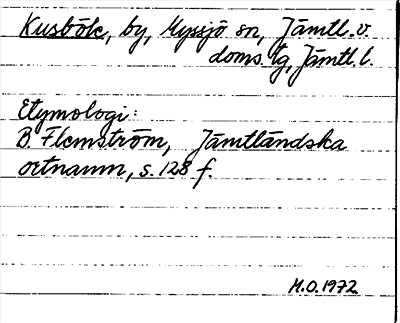 Kusböle, by, Myssjö sn, Jämtl. v.
doms. tg, Jämtl. l.
Etymologi:
B. Flemström, Jämtländska
ortnamn, s. 128 f.
M.O. 1972